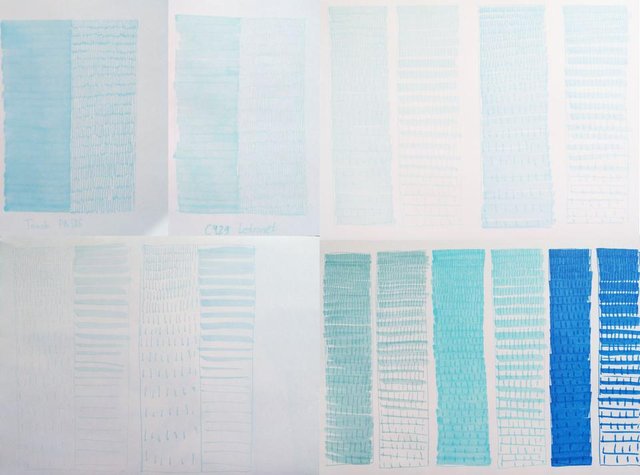 Touch PB185
C929 Letraset